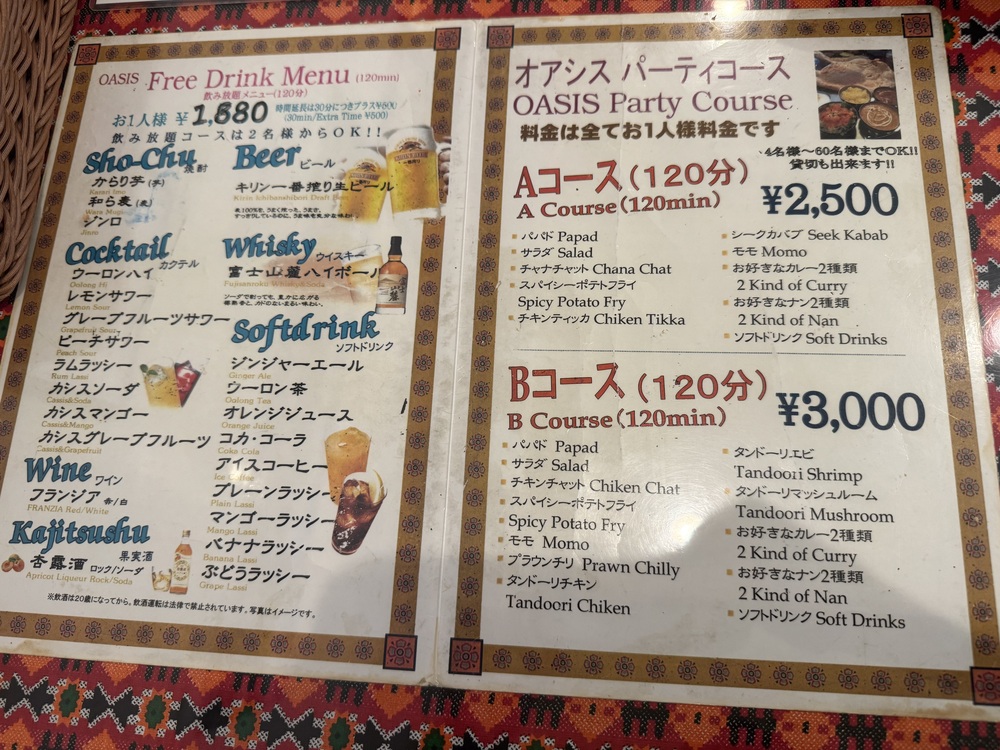 OASIS Free Drink Menu (120min)
飲み放題メニュー(120分)
お1人様 ¥1,880
時間延長は30分につきプラス¥500
(30min/Extra Time ¥500)
飲み放題コースは2名様からOK!!
Sho-Chu 焼酎
からり芋 (芋)
Karari Imo
和ら麦 (麦)
Wara Mugi
ジンロ
Jinro
Cocktail カクテル
ウーロンハイ
Oolong Hi
レモンサワー
Lemon Sour
グレープフルーツサワー
Grapefruit Sour
ピーチサワー
Peach Sour
ラムラッシー
Rum Lassi
カシスソーダ
Cassis&Soda
カシスマンゴー
Cassis&Mango
カシスグレープフルーツ
Cassis&Grapefruit
Wine ワイン
フランジア 赤/白
FRANZIA Red/White
Kajitsushu
果実酒
杏露酒 ロック/ソーダ
Apricot Liqueur Rock/Soda
Beer ビール
キリン一番搾り生ビール
Kirin Ichibanshibori Draft Beer
Whisky ウイスキー
富士山麓ハイボール
Fujisanroku Whisky&Soda
ソーダで割っても、豊かに広がる
Softdrink
ソフトドリンク
ジンジャーエール
Ginger Ale
ウーロン茶
Oolong Tea
オレンジジュース
Orange Juice
コカ・コーラ
Coka Cola
アイスコーヒー
Ice Coffee
プレーンラッシー
Plain Lassi
マンゴーラッシー
Mango Lassi
バナナラッシー
Banana Lassi
ぶどうラッシー
Grape Lassi
※飲酒は20歳になってから。飲酒運転は法律で禁止されています。写真はイメージです。
オアシス パーティコース
OASIS Party Course
料金は全てお1人様料金です
4名様〜60名様までOK!!
貸切も出来ます!!
Aコース (120分)
A Course (120min)
¥2,500
パパド Papad
サラダ Salad
チャナチャット Chana Chat
スパイシーポテトフライ
Spicy Potato Fry
チキンティッカ Chiken Tikka
シークカバブ Seek Kabab
モモ Momo
お好きなカレー2種類
2 Kind of Curry
お好きなナン2種類
2 Kind of Nan
ソフトドリンク Soft Drinks
Bコース (120分)
B Course (120min)
¥3,000
パパド Papad
サラダ Salad
チキンチャット Chiken Chat
スパイシーポテトフライ
Spicy Potato Fry
モモ Momo
プラウンチリ Prawn Chilly
タンドーリチキン
Tandoori Chiken
タンドーリエビ
Tandoori Shrimp
タンドーリマッシュルーム
Tandoori Mushroom
お好きなカレー2種類
2 Kind of Curry
お好きなナン2種類
2 Kind of Nan
ソフトドリンク Soft Drinks